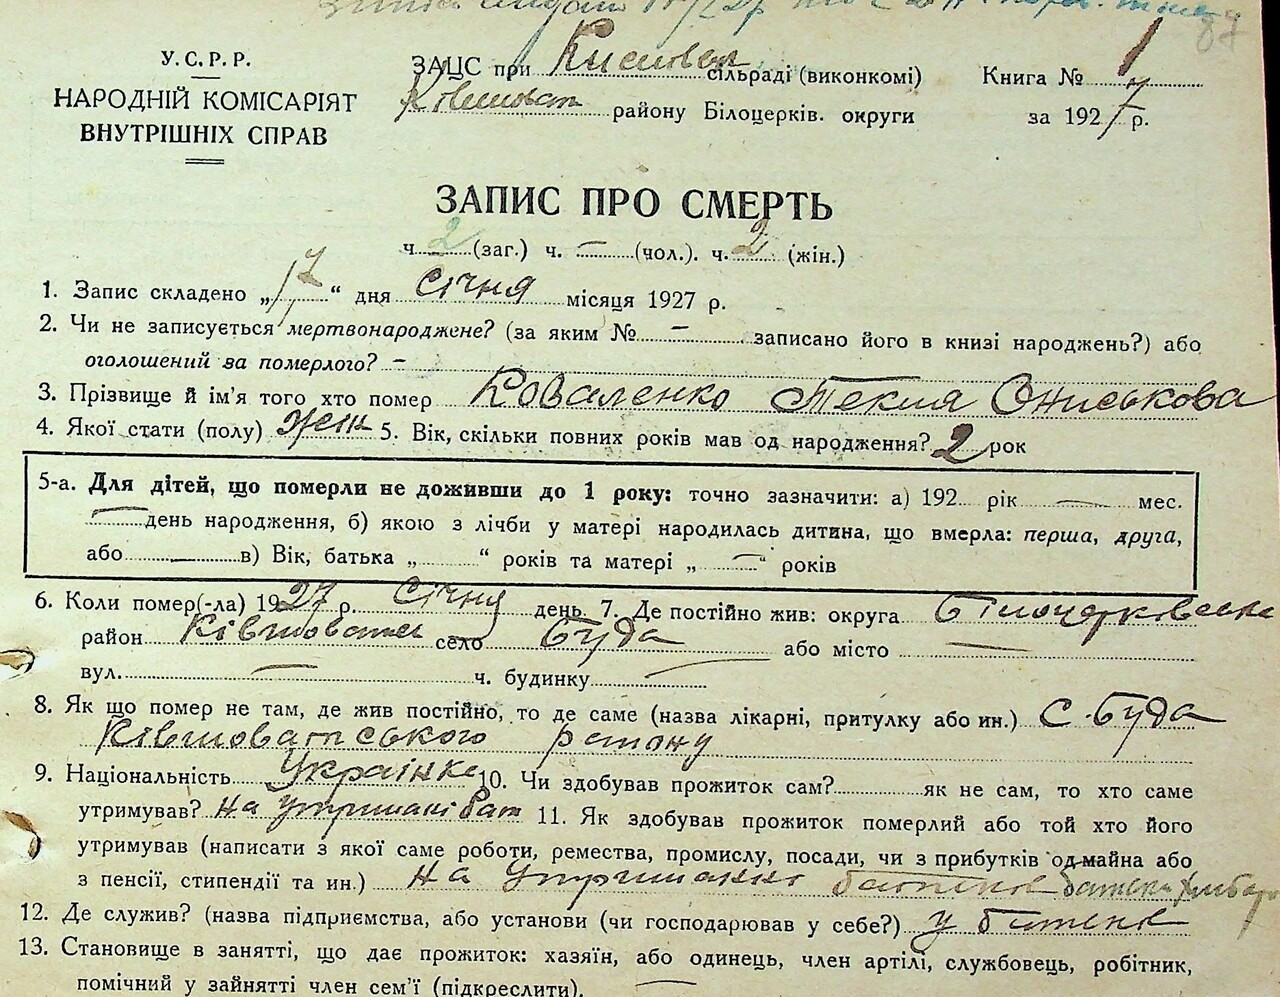 У.С.Р.Р.
НАРОДНІЙ КОМІСАРІЯТ
ВНУТРІШНІХ СПРАВ
ЗАЦС при сільраді (виконкомі)
району Білоцерків. округи
Книга № 1
за 1927 р.
87
ЗАПИС ПРО СМЕРТЬ
ч. 2 (заг.) ч. — (чол.). ч. 2 (жін.)
1. Запис складено „17“ дня Січня місяця 1927 р.
2. Чи не записується мертвонароджене? (за яким № — записано його в книзі народжень?) або
оголошений за померлого? —
3. Прізвище й ім'я того хто помер Коваленко Текля Ониськова
4. Якої стати (полу) жін 5. Вік, скільки повних років мав од народження? 2 рок
5-а. Для дітей, що померли не доживши до 1 року: точно зазначити: а) 192 рік — мес.
— день народження, б) якою з лічби у матері народилась дитина, що вмерла: перша, друга,
або — в) Вік, батька „ “ років та матері „ — “ років
6. Коли помер(-ла) 1927 р. Січня день 7. Де постійно жив: округа Білоцерківська
район село Буда або місто —
вул. — ч. будинку —
8. Як що помер не там, де жив постійно, то де саме (назва лікарні, притулку або ин.) С. Буда
Ківшоватського району
9. Національність Украінка 10. Чи здобував прожиток сам? як не сам, то хто саме
утримував? На утрімані бат 11. Як здобував прожиток померлий або той хто його
утримував (написати з якої саме роботи, ремества, промислу, посади, чи з прибутків од майна або
з пенсії, стипендії та ин.) На батьків
12. Де служив? (назва підприємства, або установи (чи господарював у себе?) у батьків
13. Становище в занятті, що дає прожиток: хазяїн, або одинець, член артілі, службовець, робітник,
помічний у зайнятті член сем'ї (підкреслити). —